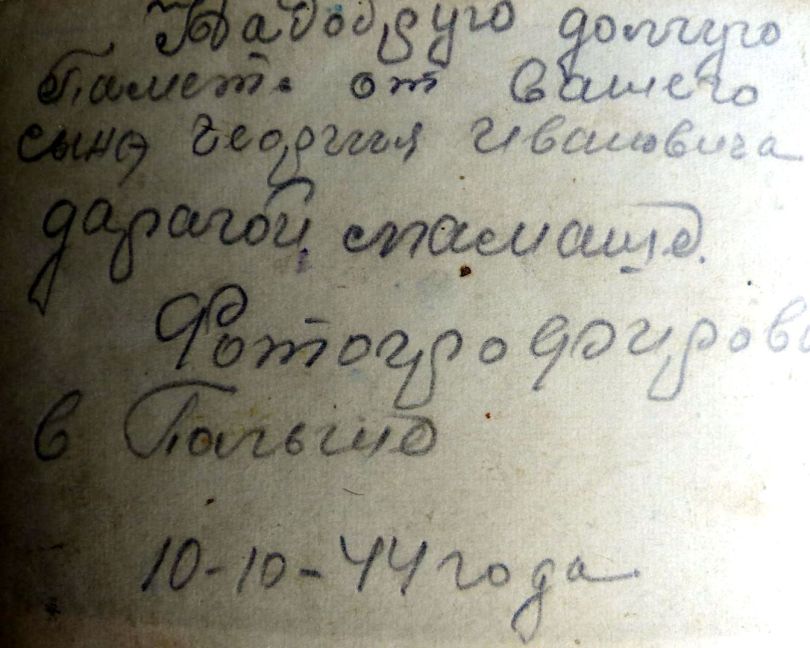 На добруго долчуго
Паметь от Вашего
сына Георгия Ивановича
дарагой мамаше.
Фотографирова
в Польше
10-10-44 года